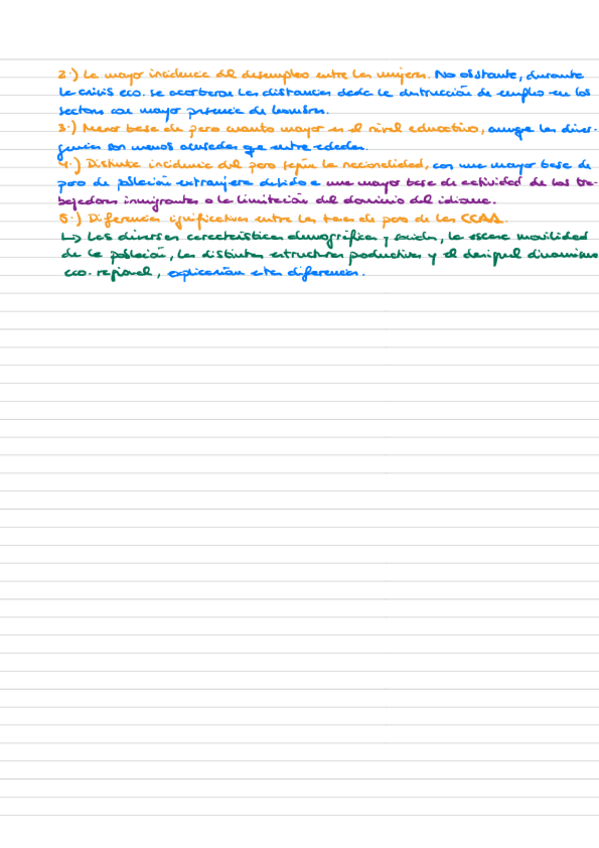 2.) La mayor incidencia del desempleo entre las mujeres. No obstante, durante
la crisis eco. se acortaron las distancias dada la destrucción de empleo en los
sectores con mayor presencia de hombres.
3.) Menor tasa de paro cuanto mayor es el nivel educativo, aunque las diver-
gencias son menos acusadas que entre edades.
4.) Distinta incidencia del paro según la nacionalidad, con una mayor tasa de
paro de población extranjera debido a una mayor tasa de actividad de los tra-
bajadores inmigrantes o la limitación del dominio del idioma.
5.) Diferencias significativas entre las tasas de paro de las CCAA.
↳ Las diversas características demográficas y sociales, la escasa movilidad
de la población, las distintas estructuras productivas y el desigual dinamismo
eco. regional, explicarían estas diferencias.